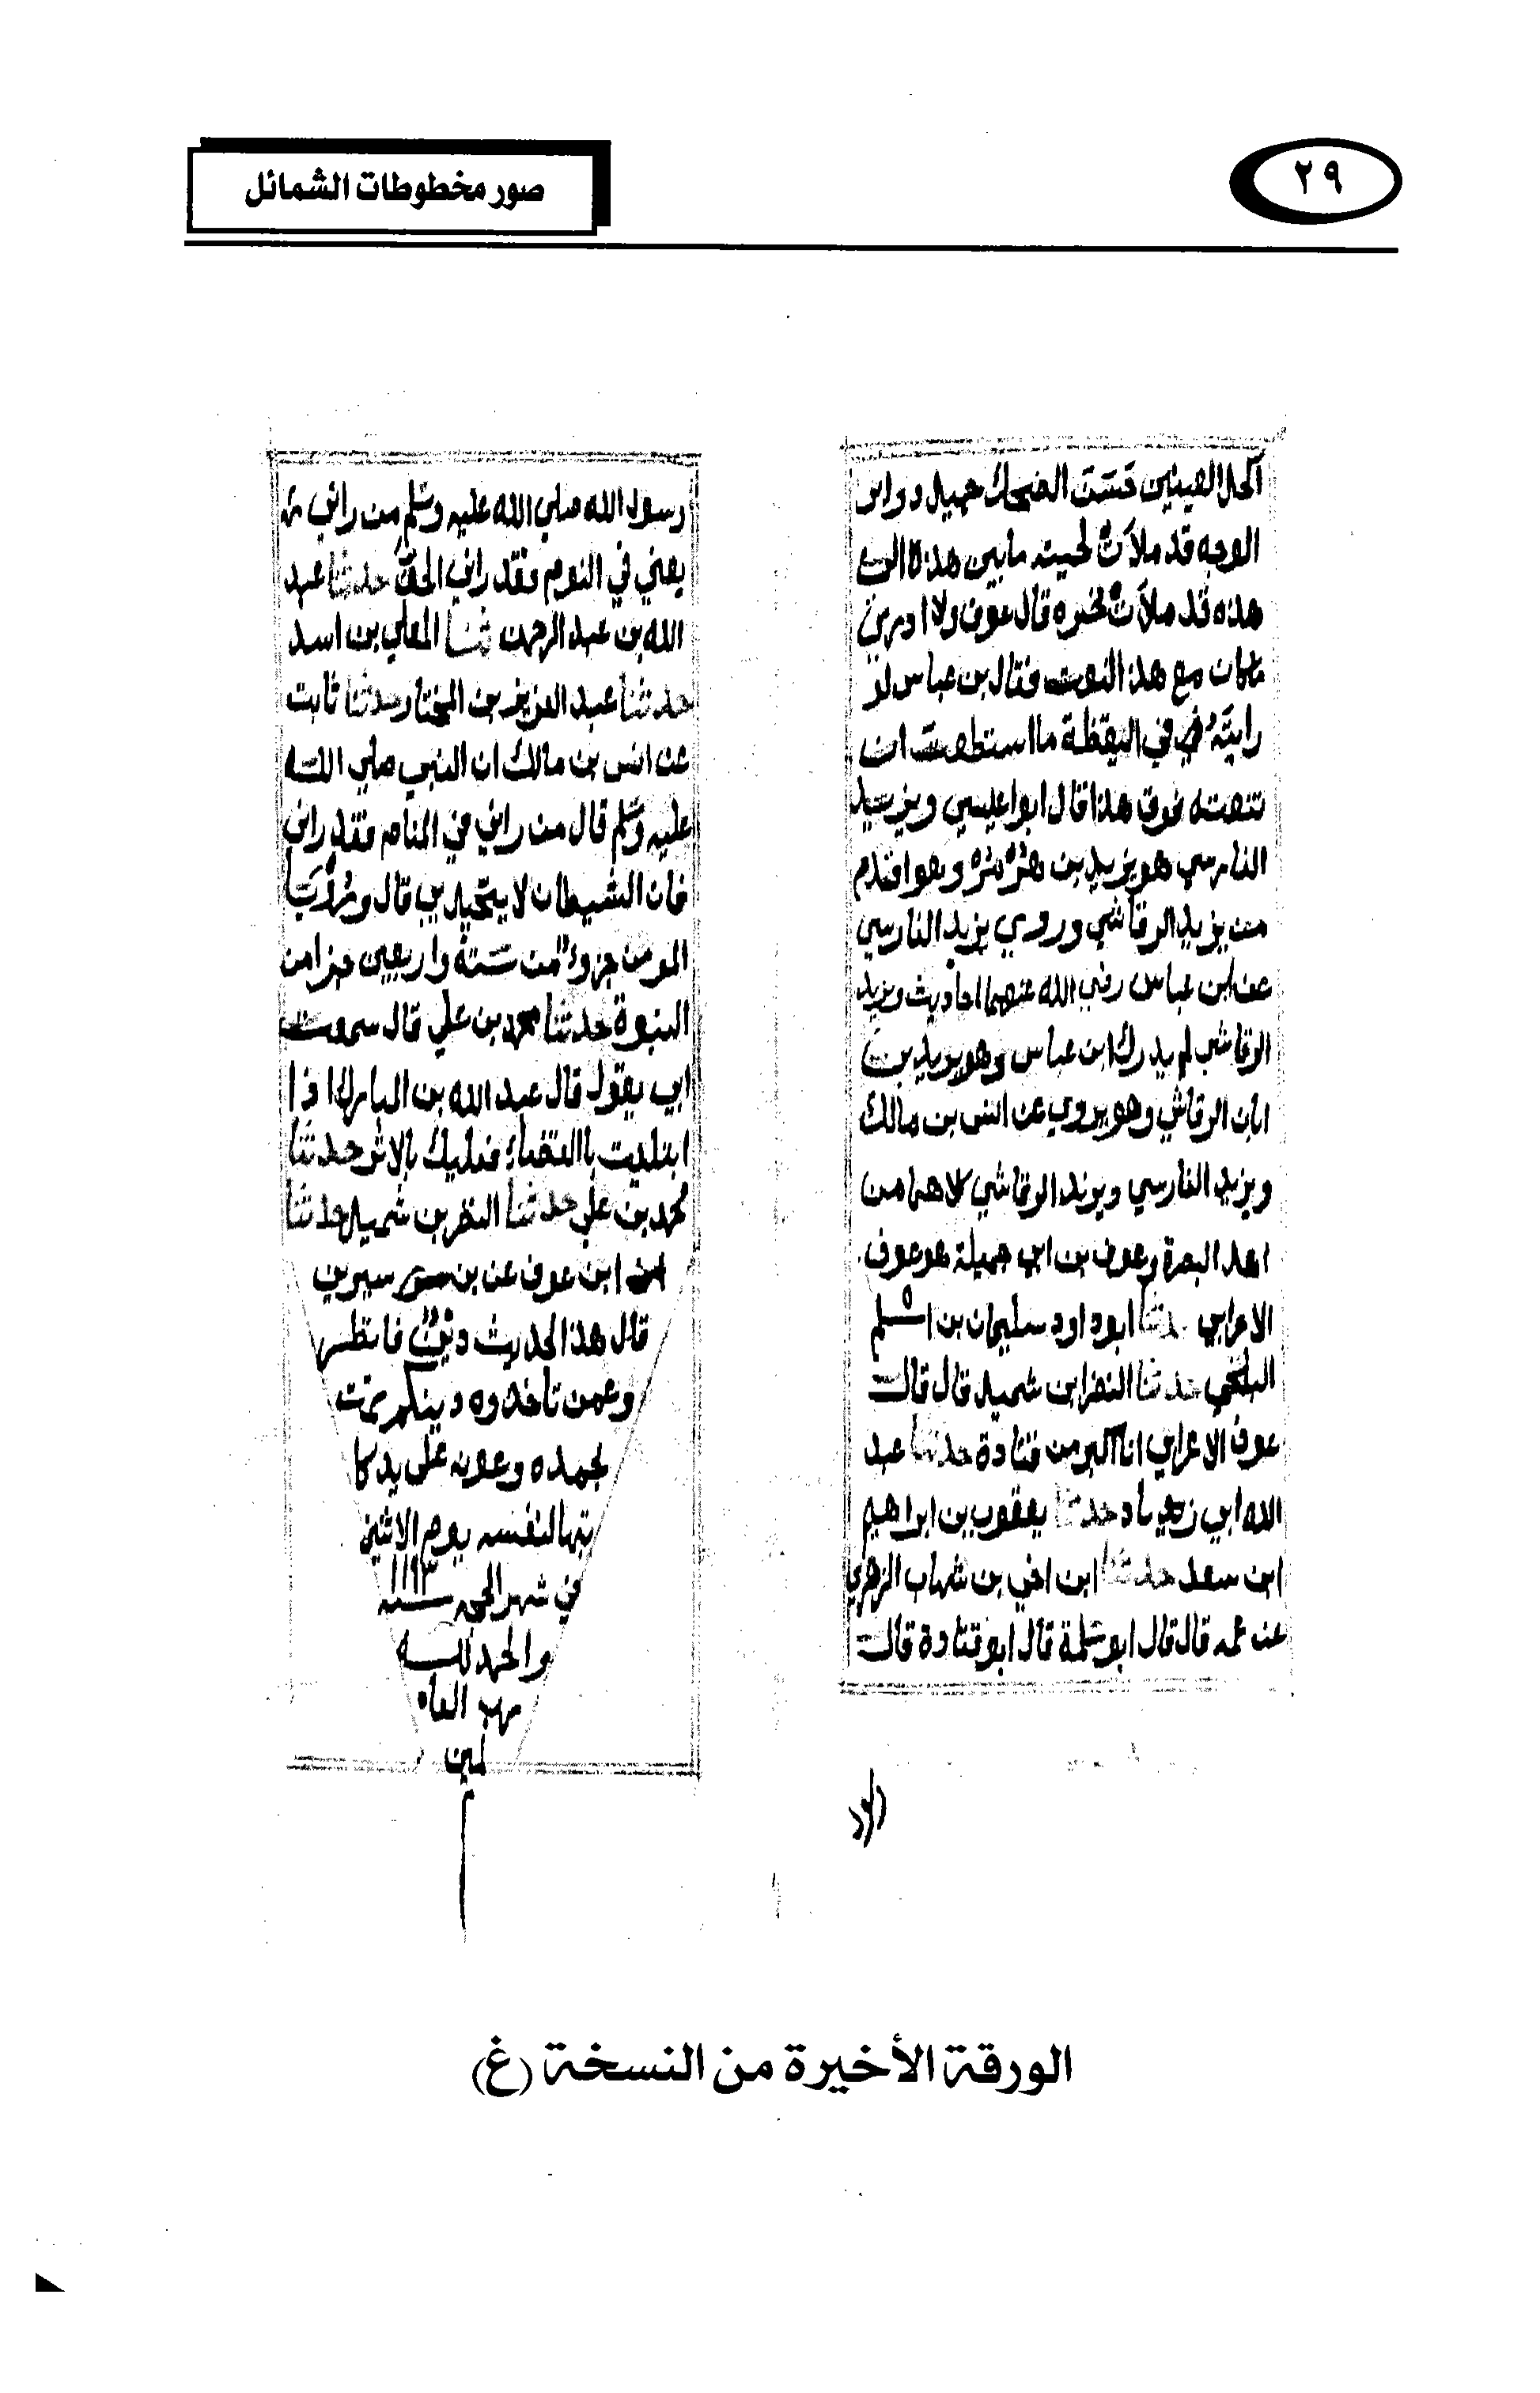 ٢٩
صور مخطوطات الشمائل
اكحل العينين حسن الضحك جميل دواير
الوجه قد ملاءت لحيته مابين هذه الى
هذه قد ملاءت نحره قال عوف ولا ادري
ماكان مع هذا النعت فقال بن عباس لو
رايته في اليقظة ما استطعت ان
تنعته فوق هذا قال ابوا عيسي ويزيد
الفارسي هو يزيد بن هرمز وهوا قدم
من يزيد الرقاشي وروي يزيد الفارسي
عن ابن عباس رضي الله عنهما احاديث ويزيد
الرقاشي لم يدرك ابن عباس وهو يزيد بن
ابان الرقاشي وهو يروي عن انس بن مالك
ويزيد الفارسي ويزيد الرقاشي كلاهما من
اهل البصرة وعوف بن ابي جميلة هو عوف
الاعرابي حدثنا ابوداود سليمان بن اسلم
البلخي حدثنا النضر ابن شميل قال قال
عوف الاعرابي انا اكبر من قتادة حدثنا عبد
الله ابي زياد حدثنا يعقوب بن ابراهيم
ابن سعد حدثنا ابن اخي بن شهاب الزهري
عن عمه قال قال ابو سلمة قال ابو قتادة قال
رسول الله صلي الله عليه وسلم من راني
يعني في النوم فقد راني الحق حدثنا عبد
الله بن عبد الرحمن ثنا المعلي بن اسد
حدثنا عبد العزيز بن المختار حدثنا ثابت
عن انس بن مالك ان النبي صلي الله
عليه وسلم قال من راني في المنام فقد راني
فان الشيطان لا يتخيل بي قال ورؤيا
المومن جزوء من ستة واربعين جزا من
النبوة حدثنا محمد بن علي قال سمعت
ابي يقول قال عبد الله بن المبارك اذا
ابتليت باالقضاء فعليك بالاثر حدثنا
محمد بن علي حدثنا النظر بن شميل حدثنا
ابن عوف عن بن سيرين
قال هذا الحديث دين فانظروا
وعمن تاخذوه دينكم تمت
بحمده وعونه على يد كا
تبها لنفسه يوم الاثنين
في شهر سنه ١١٩٣
والحمد لله
رب العا
لمين
الورقة الأخيرة من النسخة (غ)